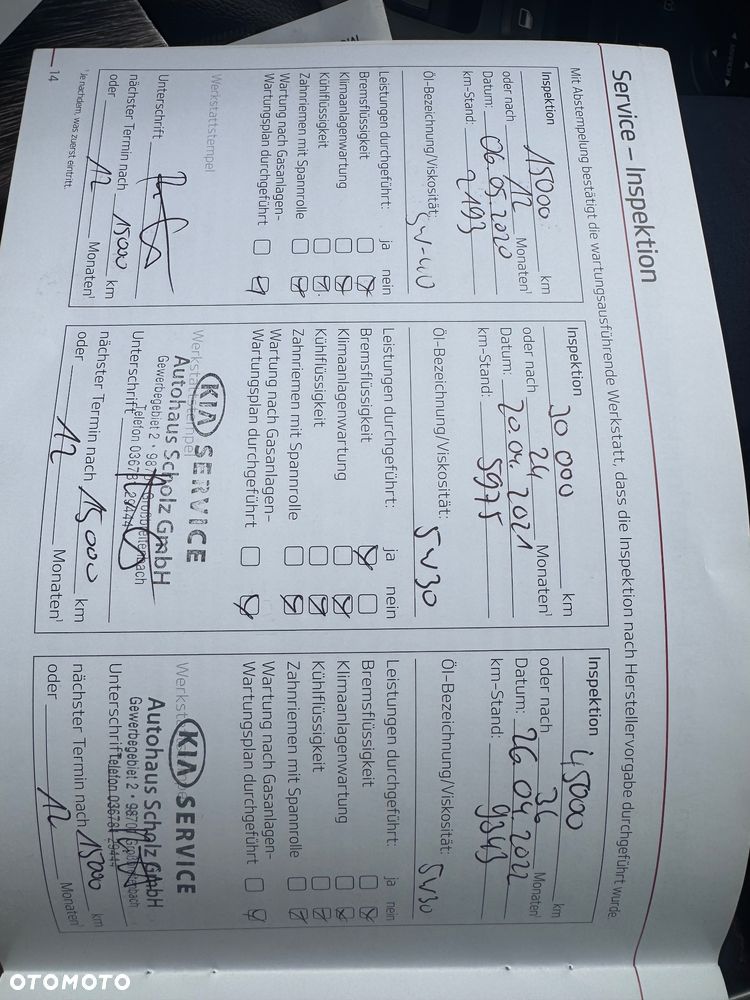 Service – Inspektion
Mit Abstempelung bestätigt die wartungsausführende Werkstatt, dass die Inspektion nach Herstellervorgabe durchgeführt wurde.
Inspektion 15000 km
oder nach 12 Monaten¹
Datum: 06.05.2020
km-Stand: 2193
Öl-Bezeichnung/Viskosität: 5W-40
Leistungen durchgeführt: ja nein
Bremsflüssigkeit
Klimaanlagenwartung
Kühlflüssigkeit
Zahnriemen mit Spannrolle
Wartung nach Gasanlagen-
Wartungsplan durchgeführt
Werkstattstempel
Unterschrift
nächster Termin nach 15000 km
oder 12 Monaten¹
Inspektion 30 000 km
oder nach 24 Monaten¹
Datum: 20.04.2021
km-Stand: 5975
Öl-Bezeichnung/Viskosität: 5W30
Leistungen durchgeführt: ja nein
Bremsflüssigkeit
Klimaanlagenwartung
Kühlflüssigkeit
Zahnriemen mit Spannrolle
Wartung nach Gasanlagen-
Wartungsplan durchgeführt
KIA SERVICE
Werkstattstempel
Autohaus Scholz GmbH
Gewerbegebiet 2 • 98701 Großbreitenbach
Telefon 036781 29444
Unterschrift
nächster Termin nach 15000 km
oder 12 Monaten¹
Inspektion 45000 km
oder nach 36 Monaten¹
Datum: 26.04.2022
km-Stand: 9343
Öl-Bezeichnung/Viskosität: 5W30
Leistungen durchgeführt: ja nein
Bremsflüssigkeit
Klimaanlagenwartung
Kühlflüssigkeit
Zahnriemen mit Spannrolle
Wartung nach Gasanlagen-
Wartungsplan durchgeführt
KIA SERVICE
Autohaus Scholz GmbH
Gewerbegebiet 2 • 98701 Großbreitenbach
Unterschrift Telefon 036781 29444
nächster Termin nach 15000 km
oder 12 Monaten¹
¹Je nachdem, was zuerst eintritt.
14
OTOMOTO